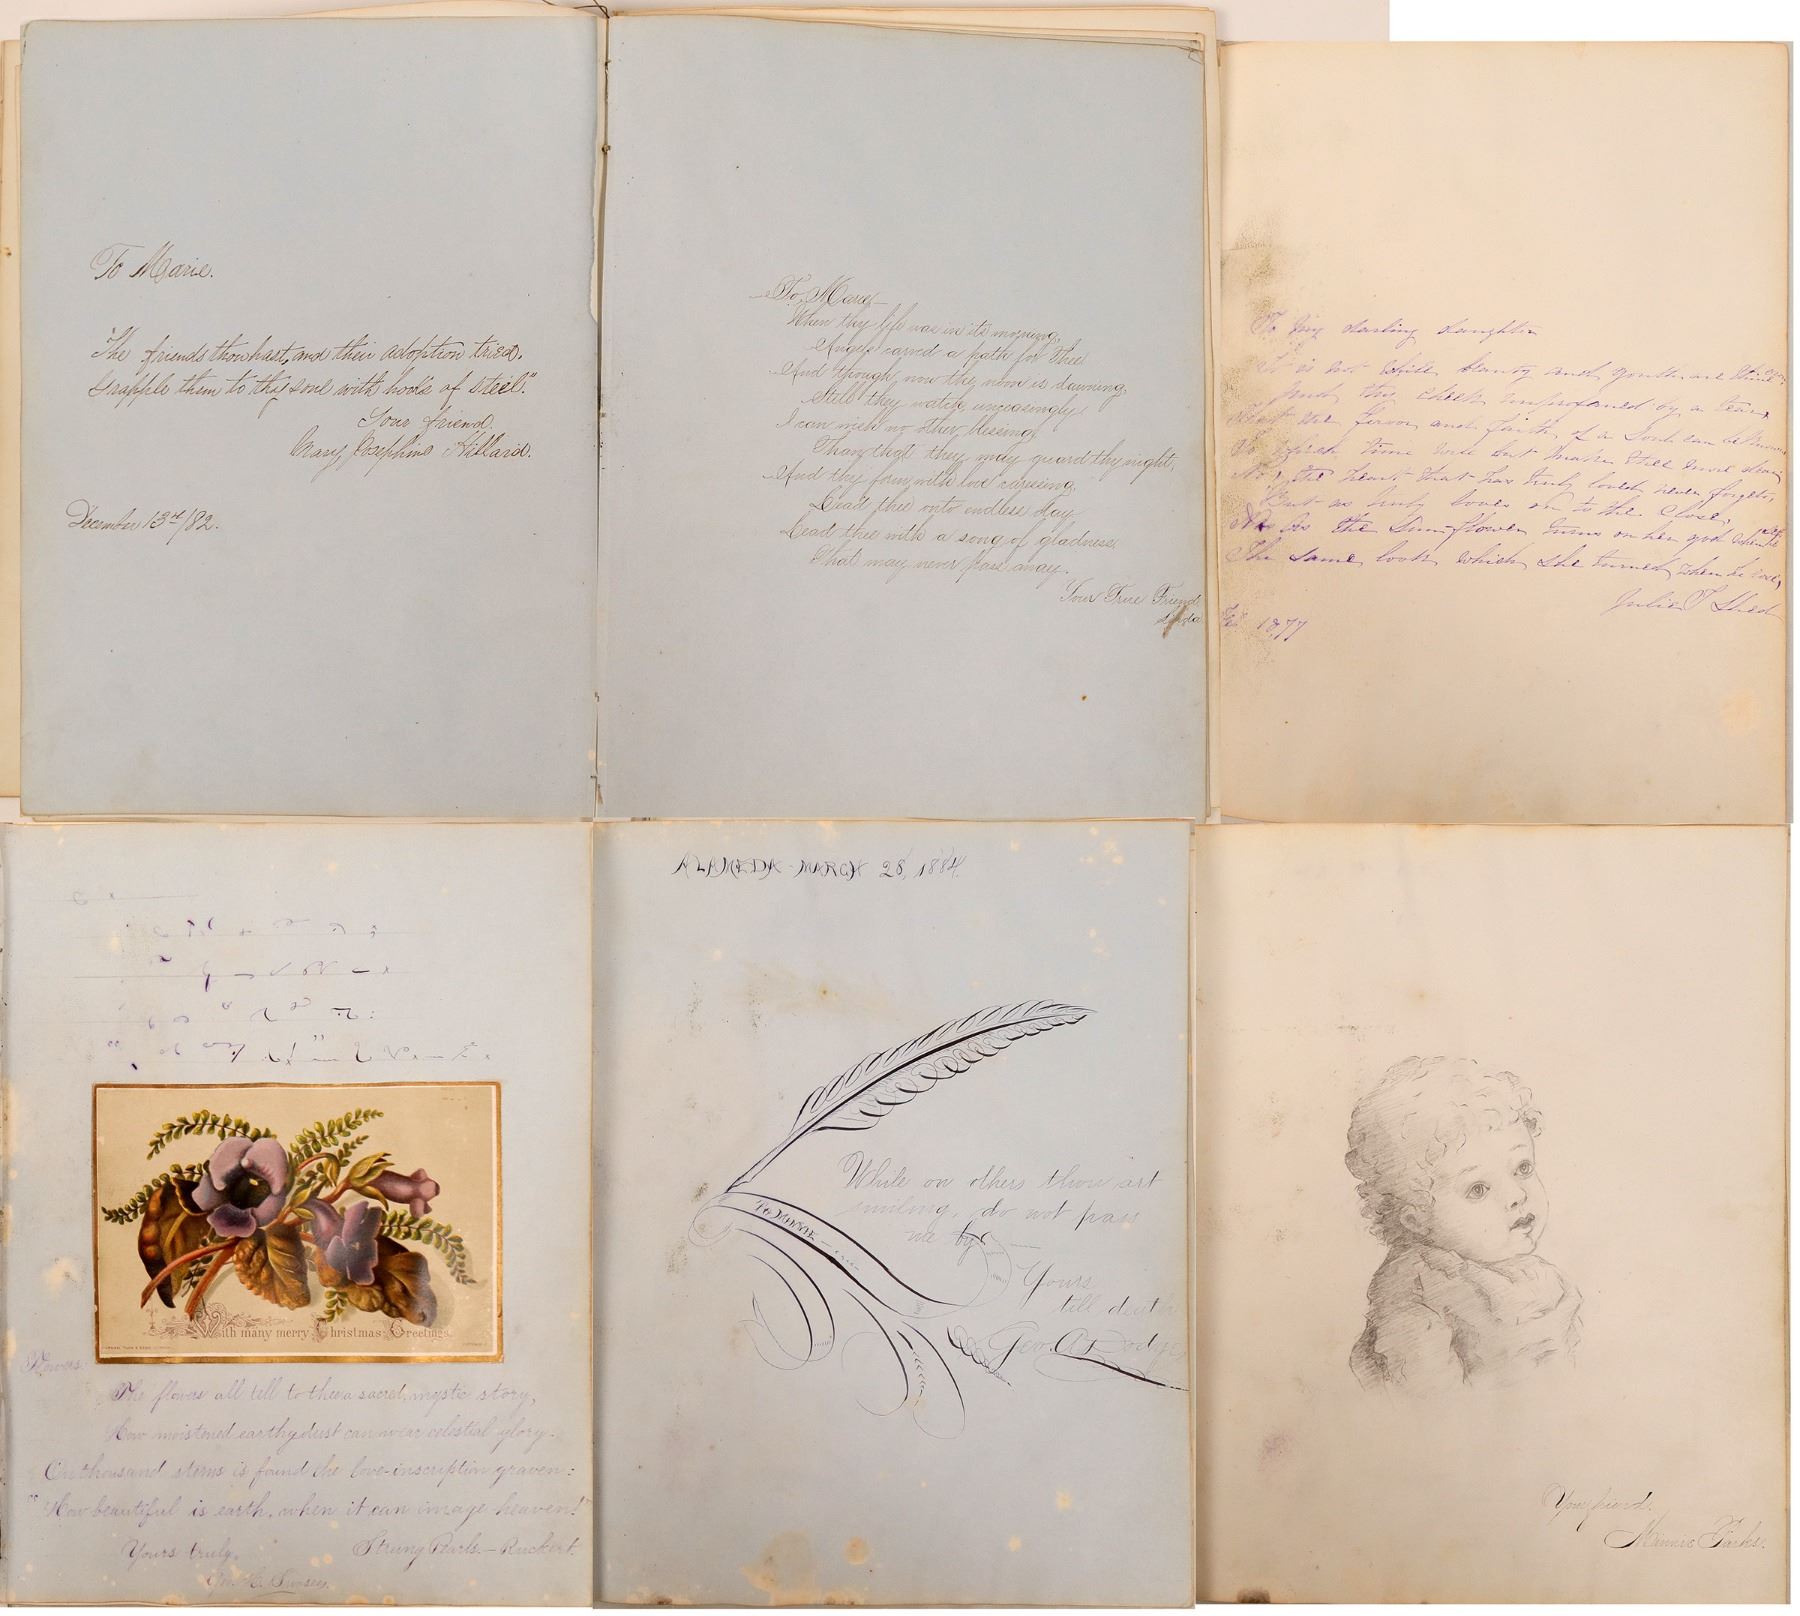 To Marie.
"The friends thou hast, and their adoption tried,
Grapple them to thy soul with hooks of steel."
Your friend.
Mary Josephine Hillard.
December 13th/82.
To Marie
When thy life was in its morning,
Angels carved a path for thee
And though now the noon is dawning,
Still they watch unceasingly
I can wish no other blessing
Than that they may guard thy night,
And thy form with love caressing
Lead thee onto endless day
Lead thee with a song of gladness
That may never pass away.
Your True Friend
To my darling daughter
It is not while beauty and youth are thine own
And thy cheek unprofaned by a tear
That the fervor and faith of a soul can be known
To which time will but make thee more dear
No, the heart that has truly loved never forgets,
But as truly loves on to the close,
As the Sunflower turns on her god when he sets
The same look which she turned when he rose,
Julia T Shed
1877
With many merry Christmas Greetings
Flowers.
The flowers all tell to thee a sacred, mystic story,
How moistened earthy dust can wear celestial glory.
On thousand stems is found the love-inscription graven:
"How beautiful is earth, when it can image heaven!"
Strung Pearls. — Ruckert.
Yours truly,
ALAMEDA - MARCH 28, 1884.
To Minnie
While on others thou art
smiling, do not pass
me by
Yours
till death
Geo. A. Dodge
Your friend.
Minnie